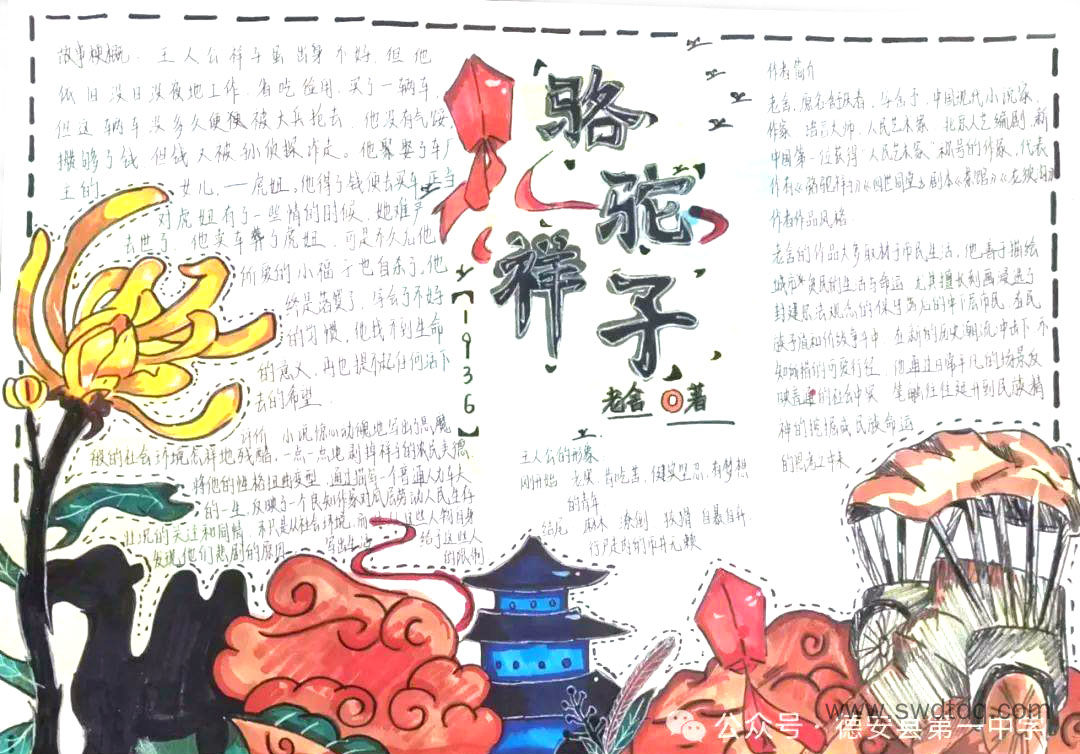 故事梗概: 主人公祥子虽出身不好, 但他
依旧没日没夜地工作, 省吃俭用, 买了一辆车,
但这辆车没多久便被大兵抢去, 他没有气馁,
攒够了钱 但钱又被孙侦探诈走。他娶了车厂
主的 女儿, 一虎妞, 他得了钱便去买车, 正当
对虎妞有了一些情的时候, 她难产
去世了, 他卖车葬了虎妞, 可是不久后他
所爱的小福子也自杀了, 他
终是落魄了, 学会了不好
的习惯, 他找不到生命
的意义, 再也提不起任何活下
去的希望
骆驼
祥子
【1936】
老舍 著
作者简介
老舍, 原名舒庆春, 字舍予, 中国现代小说家,
作家 语言大师、人民艺术家、北京人艺编剧, 新
中国第一位获得“人民艺术家”称号的作家, 代表
作有《骆驼祥子》《四世同堂》剧本《茶馆》《龙须沟》
作者作品风格
老舍的作品大多取材于市民生活, 他善于描绘
城市贫民的生活与命运 尤其擅长刻画浸透了
封建宗法观念的保守落后的中下层市民 在民
族矛盾和阶级斗争中 在新的历史潮流冲击下 不
知所措的可爱行径 他通过日常平凡的场景反
映普遍的社会冲突 笔触往往延伸到民族精
神的挖掘或民族命运
的思考
评价 小说惊心动魄地写出了恶魔
般的社会环境怎样地残酷 一点一点地剥掉祥子的农民美德
将他的性格扭曲变型 通过描写一个普通人力车夫
的一生 反映了一个民知作家对底层劳动人民生存
状况的关注和同情 不只是从社会环境
发现他们悲剧的原因 写出生活给予这些人
的限制
主人公的形象
刚开始 老实 肯吃苦 健壮坚忍 有梦想
的青年
结尾 麻木 潦倒 狡猾 自暴自弃
行尸走肉的市井无赖
www.swdtdc.com
公众号·德安县第一中学